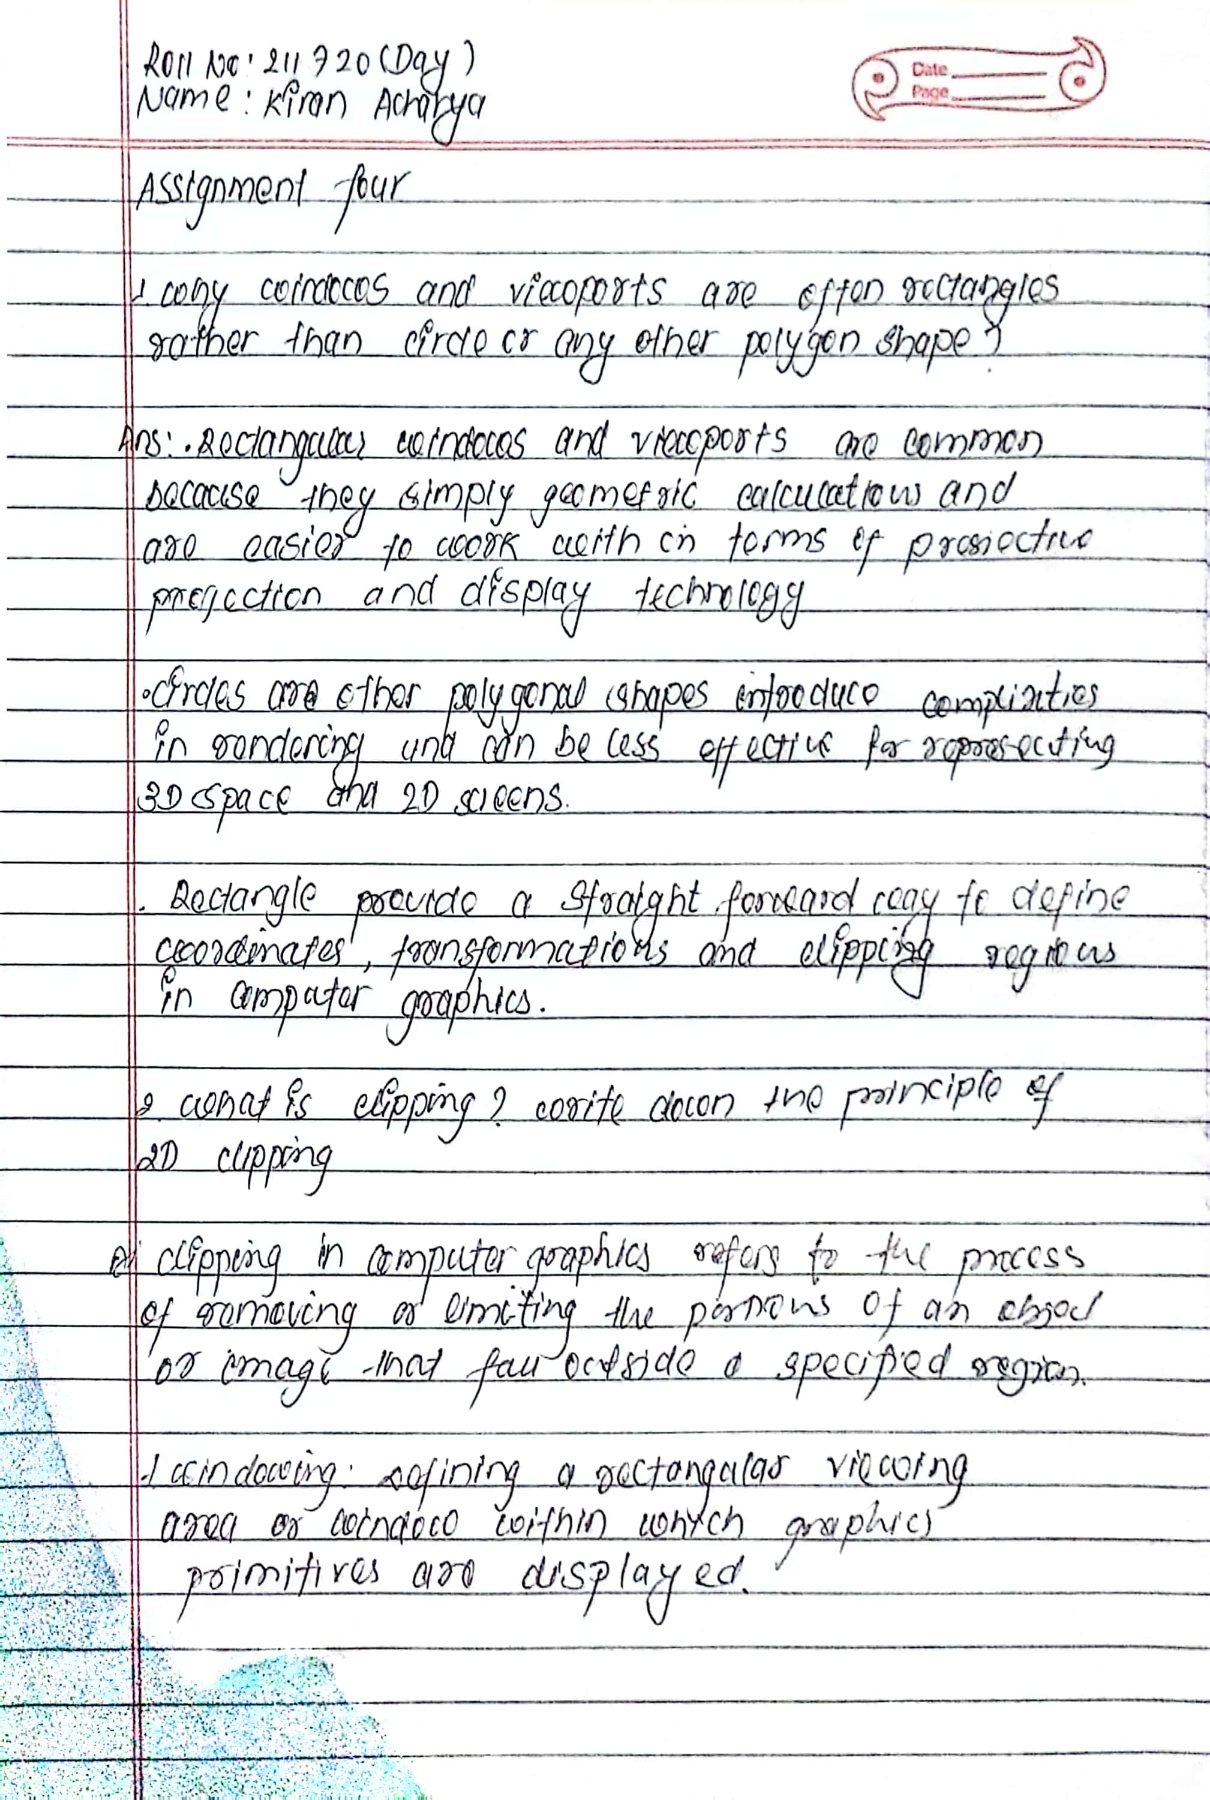 Roll No: 211720 (Day)
Name: Kiran Acharya
Date
Page
Assignment four
1 why windows and viewports are often rectangles
rather than circle or any other polygon shape?
Ans: . Rectangular windows and viewports are common
because they simply geometric calculations and
are easier to work with in terms of
projection and display technology
• circles are other polygonal shapes introduce
in rendering and can be less effective for representing
3D space and 2D screens.
. Rectangle provide a straight forward way to define
coordinates, transformations and clipping regions
in computer graphics.
2 what is clipping? write down the principle of
2D clipping
clipping in computer graphics refers to the process
of removing or limiting the portions of an object
or image that fall outside a specified region.
1 windowing: Defining a rectangular viewing
area or window within which graphics
primitives are displayed.